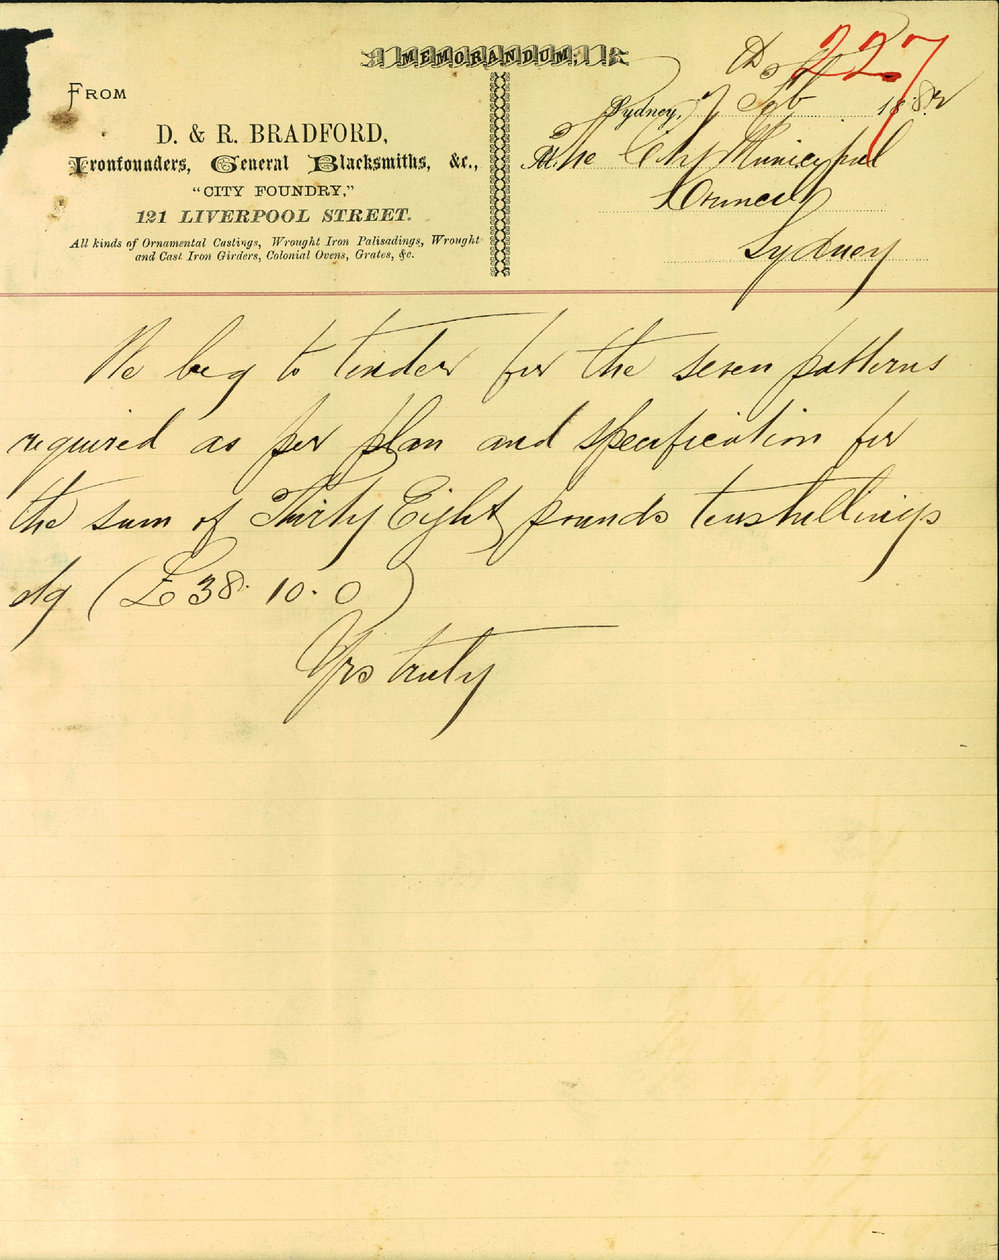 MEMORANDUM.
227
FROM
D. & R. BRADFORD,
Ironfounders, General Blacksmiths, &c.,
"CITY FOUNDRY,"
121 LIVERPOOL STREET.
All kinds of Ornamental Castings, Wrought Iron Palisadings, Wrought
and Cast Iron Girders, Colonial Ovens, Grates, &c.
Sydney, 7th Feb 1882
M. The City Municipal
Council
Sydney
We beg to tender for the seven patterns
required as per plan and specification for
the sum of Thirty Eight pounds ten shillings
stg (£38.10.0)
Yrs truly